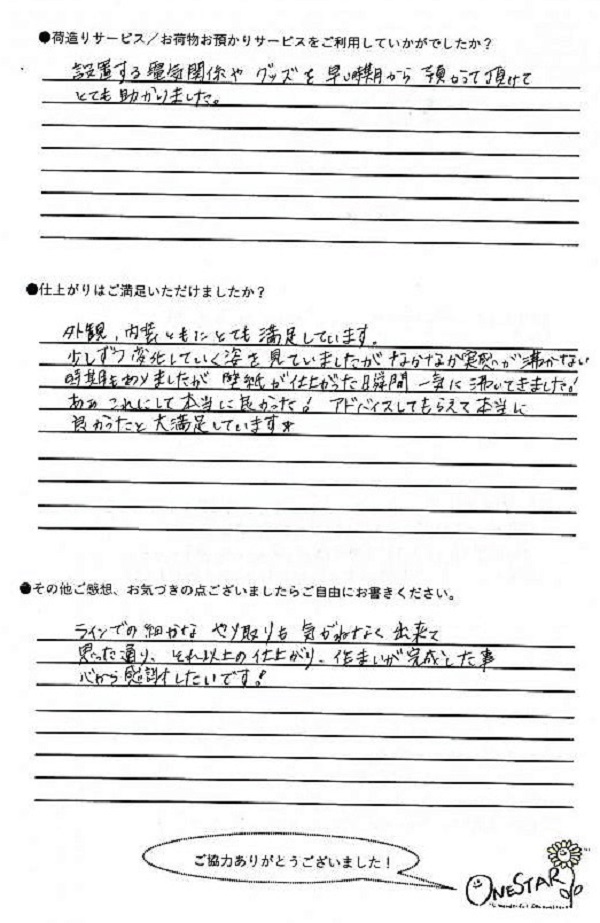 ●荷造りサービス／お荷物お預かりサービスをご利用していかがでしたか？
設置する電気関係や グッズを早い時期から 預かって頂けて
とても助かりました。
●仕上がりはご満足いただけましたか？
外観、内装ともにとても満足しています。
少しずつ変化していく姿を見ていましたがなかなか実感が沸かない
時期もありましたが 壁紙が仕上がった瞬間 一気に沸いてきました!
あぁ これにして本当に良かった! アドバイスしてもらえて本当に
良かったと大満足しています☆
●その他ご感想、お気づきの点ございましたらご自由にお書きください。
ラインでの細かな やり取りも 気がねなく出来て
思った通り、それ以上の仕上がり、住まいが完成した事
心から感謝したいです!
ご協力ありがとうございました！
ONESTAR